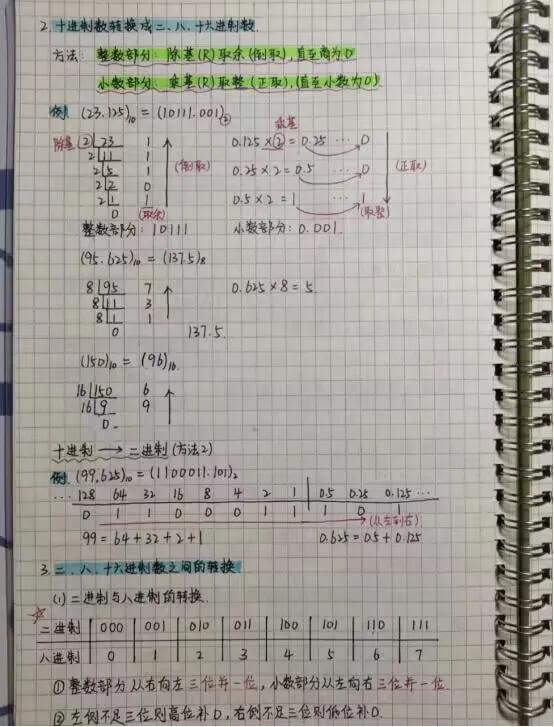 2. 十进制数转换成二、八、十六进制数.
方法: 整数部分: 除基(R)取余(倒取), 直至商为0
小数部分: 乘基(R)取整(正取), (直至小数为0)
例. (23.125)₁₀ = (10111.001)②
乘基
除基 ② 23 1 0.125 × ② = 0.25 ⋯ 0
2 11 1 (倒取)
2 5 1 0.25 × 2 = 0.5 ⋯ 0 (正取)
2 2 0
2 1 1 0.5 × 2 = 1 1
0 (取余) (取整)
整数部分: 10111 小数部分: 0.001.
(95.625)₁₀ = (137.5)₈
8 95 7 0.625 × 8 = 5
8 11 3
8 1 1
0 137.5.
(150)₁₀ = (96)₁₆
16 150 6
16 9 9
0
十进制 → 二进制(方法2)
例. (99.625)₁₀ = (1100011.101)₂
⋯ 128 64 32 16 8 4 2 1 0.5 0.25 0.125 ⋯
0 1 1 0 0 0 1 1 1 0 1
(从左到右)
99 = 64 + 32 + 2 + 1 0.625 = 0.5 + 0.125
3. 二、八、十六进制数之间的转换
(1) 二进制与八进制的转换.
☆
二进制 000 001 010 011 100 101 110 111
八进制 0 1 2 3 4 5 6 7
① 整数部分从右向左三位并一位, 小数部分从左向右三位并一位.
② 左侧不足三位则高位补0, 右侧不足三位则低位补0.